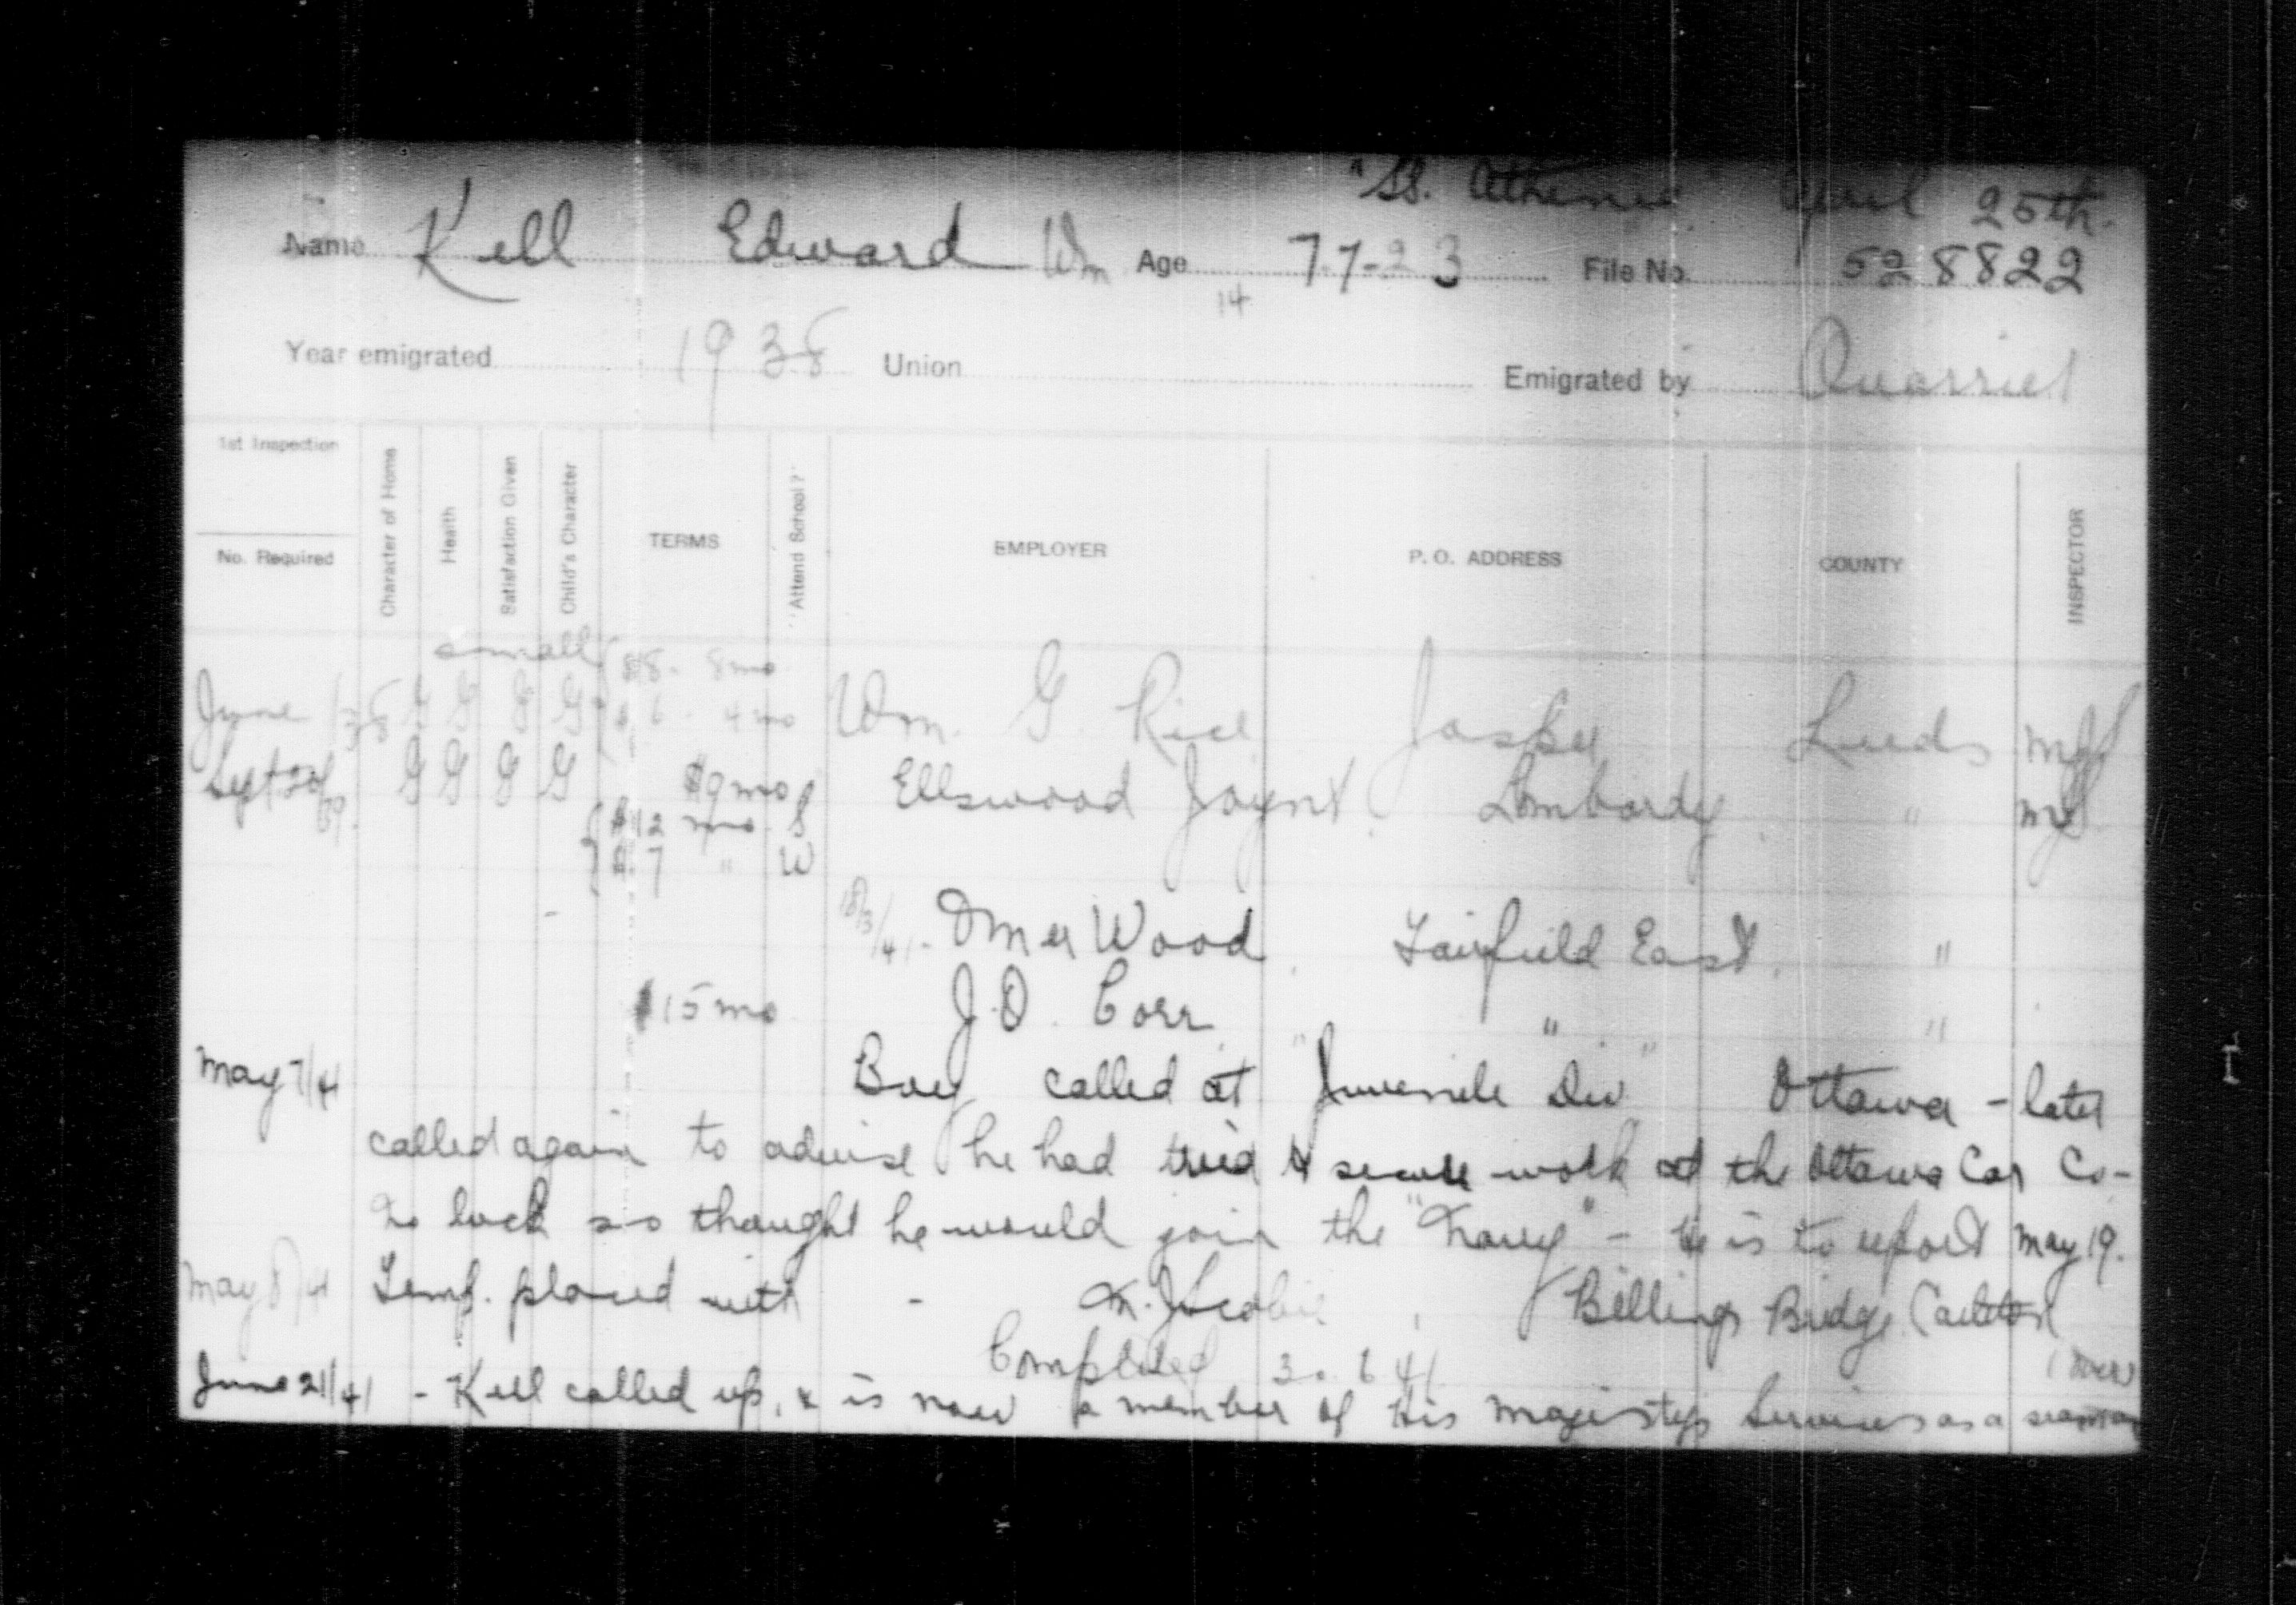 "SS. Athenia April 25th.
Name Kell Edward Wm Age 7-7-23 File No. 528822
14
Year emigrated 1938 Union Emigrated by Quarrier
1st Inspection
No. Required Character of Home Health Satisfaction Given Child's Character TERMS Attend School? EMPLOYER P. O. ADDRESS COUNTY INSPECTOR
small $8 - 8 mo
June /38 G G G G $6 - 4 mo Wm. G. Rice Jasper Leeds
Sept 20/39 G G G G $9 mo Ellswood Joynt Lombardy "
$12 mo S
$7 " W
18/3/41 - Omer Wood, Fairfield East, "
$15 mo J. O. Corr, " " " "
May 7/41 Boy called at Juvenile Div Ottawa - later
called again to advise he had tried to secure work at the Ottawa Car Co -
No luck so thought he would join the "Navy" - He is to report May 19.
May 8/41 Temp. placed with - Billings Bridge Carleton
Completed 30.6.41
June 21/41 - Kell called up, & is now a member of His Majestys Services as a seaman